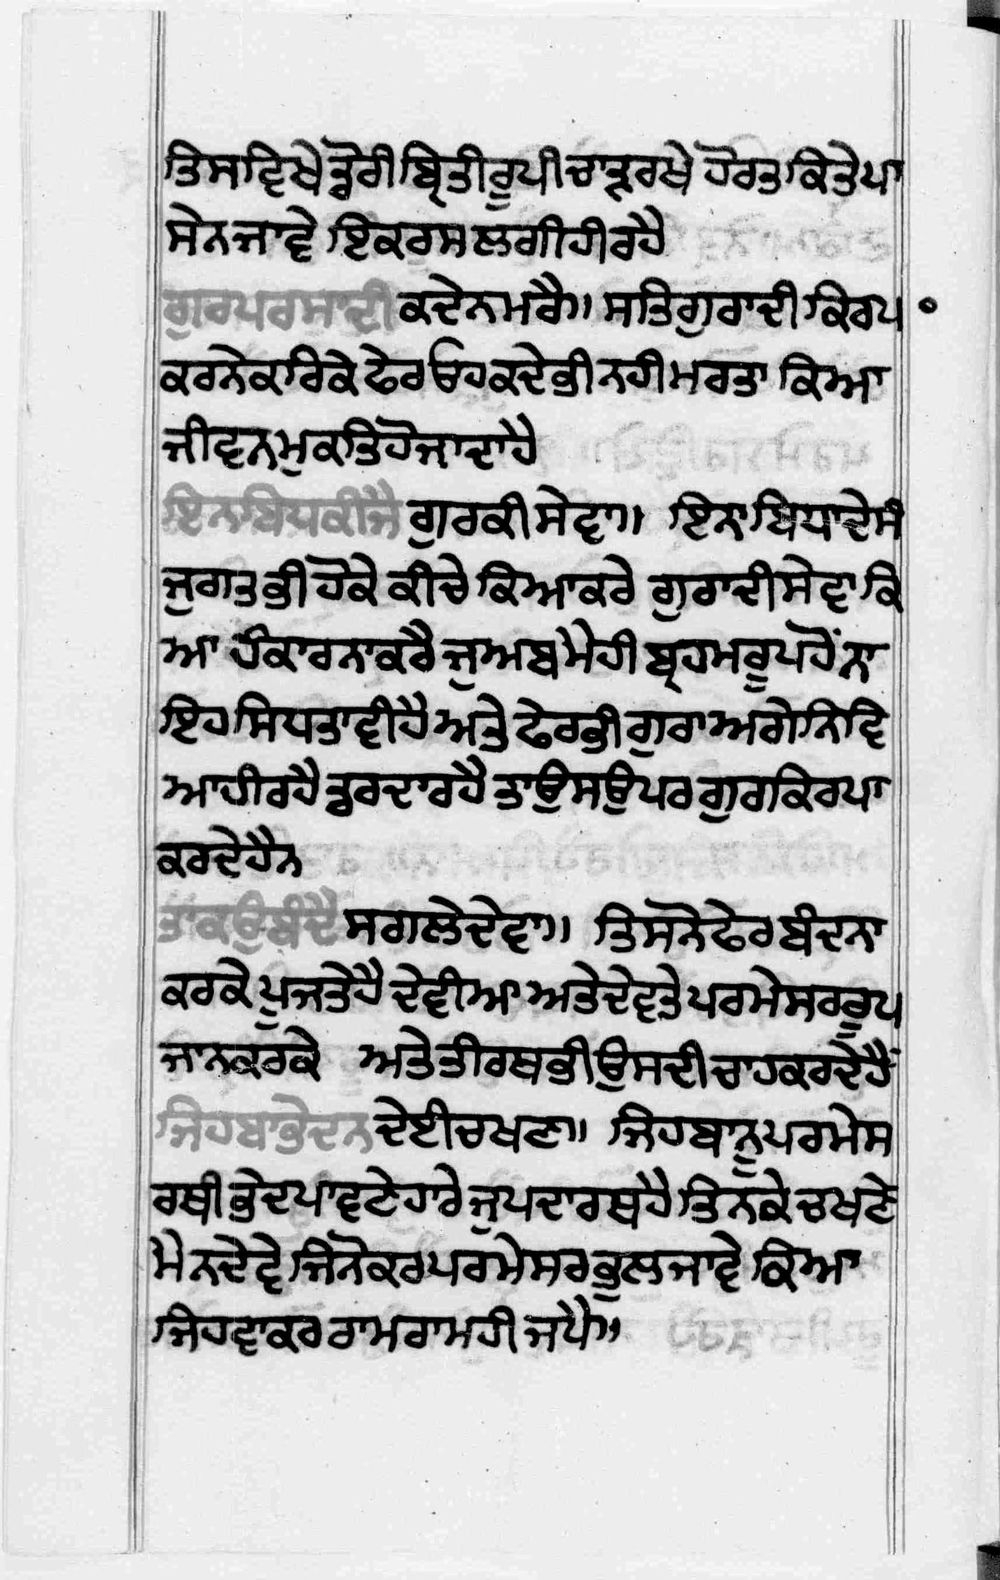 ਤਿਸਵਿਖੇ ਤ੍ਵੋਰੀ ਬ੍ਰਿਤੀ ਰੂਪੀ ਚਾਤ੍ਰਖੇ ਹੋਰਤ ਕਿਤੇ ਪਾ
ਸੇ ਨ ਜਾਵੇ ਇਕਰਸ ਲਗੀ ਹੀ ਰਹੈ
ਗੁਰਪਰਸਾਦੀ ਕਦੇ ਨ ਮਰੈ॥ ਸਤਿਗੁਰਾ ਦੀ ਕਿਰਪ
ਕਰਨੇ ਕਰਿਕੇ ਫੇਰ ਓਹ ਕਦੇ ਭੀ ਨਹੀ ਮਰਤਾ ਕਿਆ
ਜੀਵਨ ਮੁਕਤਿ ਹੋ ਜਾਦਾ ਹੈ
ਇਨ ਬਿਧ ਕੀਜੈ ਗੁਰ ਕੀ ਸੇਵਾ॥ ਇਨਾ ਬਿਧਾ ਦੇ ਸੰ
ਜੁਗਤ ਭੀ ਹੋਕੇ ਕੀਚੇ ਕਿਆ ਕਰੇ ਗੁਰਾ ਦੀ ਸੇਵਾ ਕਿ
ਆ ਹੰਕਾਰ ਨਾ ਕਰੈ ਜੁ ਅਬ ਮੇ ਹੀ ਬ੍ਰਹਮ ਰੂਪ ਹੋਂ ਨਾ
ਇਹ ਸਿਧਤਾ ਵੀ ਹੈ ਅਤੇ ਫੇਰ ਭੀ ਗੁਰਾ ਅਗੇ ਨਿਵਿ
ਆ ਹੀ ਰਹੈ ਡਰਦਾ ਰਹੈ ਤਾ ਉਸ ਉਪਰ ਗੁਰ ਕਿਰਪਾ
ਕਰਦੇ ਹੈਨ
ਤਾ ਕਉ ਬੰਦੈ ਸਗਲੇ ਦੇਵਾ॥ ਤਿਸਨੋ ਫੇਰ ਬੰਦਨਾ
ਕਰਕੇ ਪੂਜਤੇ ਹੈ ਦੇਵੀਆ ਅਤੇ ਦੇਵਤੇ ਪਰਮੇਸਰ ਰੂਪ
ਜਾਨ ਕਰਕੇ ਅਤੇ ਤੀਰਥ ਭੀ ਉਸ ਦੀ ਚਾਹ ਕਰਦੇ ਹੈਂ
ਜਿਹਬਾ ਭੇਦ ਨ ਦੇਈ ਚਖਣਾ॥ ਜਿਹਬਾ ਨੂ ਪਰਮੇਸ
ਰਥੀ ਭੇਦ ਪਾਵਣੇਹਾਰੇ ਜੁ ਪਦਾਰਥ ਹੈ ਤਿਨ ਕੇ ਚਖਣੇ
ਮੇ ਨ ਦੇਵੇ ਜਿਨੋ ਕਰ ਪਰਮੇਸਰ ਭੁਲ ਜਾਵੇ ਕਿਆ
ਜਿਹਵਾ ਕਰ ਰਾਮ ਰਾਮ ਹੀ ਜਪੈ॥